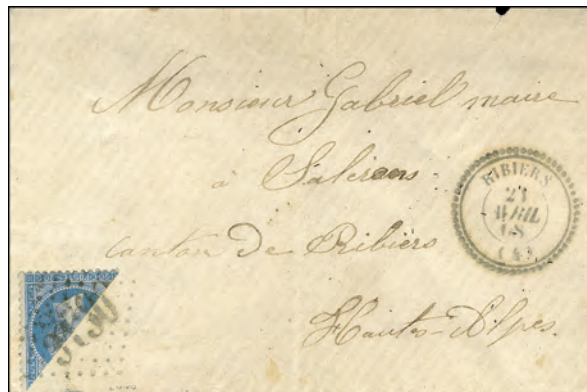 Monsieur Gabriel maire
à Salérans
canton de Ribiers
Hautes-Alpes.
RIBIERS
21
AVRIL
68
(4)